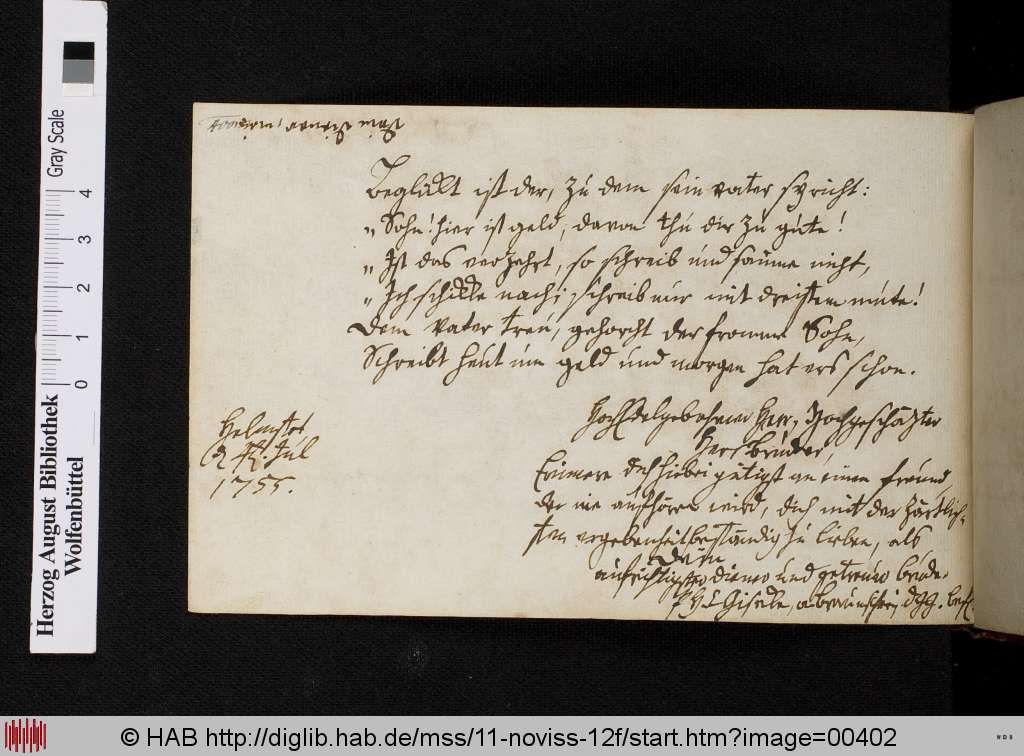 Beglükt ist der, zu dem sein vater spricht:
„Sohn! hier ist geld, davon thu dir zu gute!
„Ist das verzehrt, so schreib und säume nicht,
„Ich schikke nach; schreib nur mit dreistem mute!
Dem Vater treu, gehorcht der fromme Sohn,
Schreibt heut um geld und morgen hat ers schon.
HochEdelgebohrner Herr, Hochgeschäzter
Herr bruder,
Erinnere dich hiebei gütigst an einen freund,
der nie aufhören wird, dich mit der zärtlich-
sten ergebenheit beständig zu lieben, als
Dein
aufrichtigster diener und getreuer bruder
Giseke
Helmstet
Jul
1755.
Herzog August Bibliothek
Wolfenbüttel
Gray Scale
0 1 2 3 4
© HAB http://diglib.hab.de/mss/11-noviss-12f/start.htm?image=00402